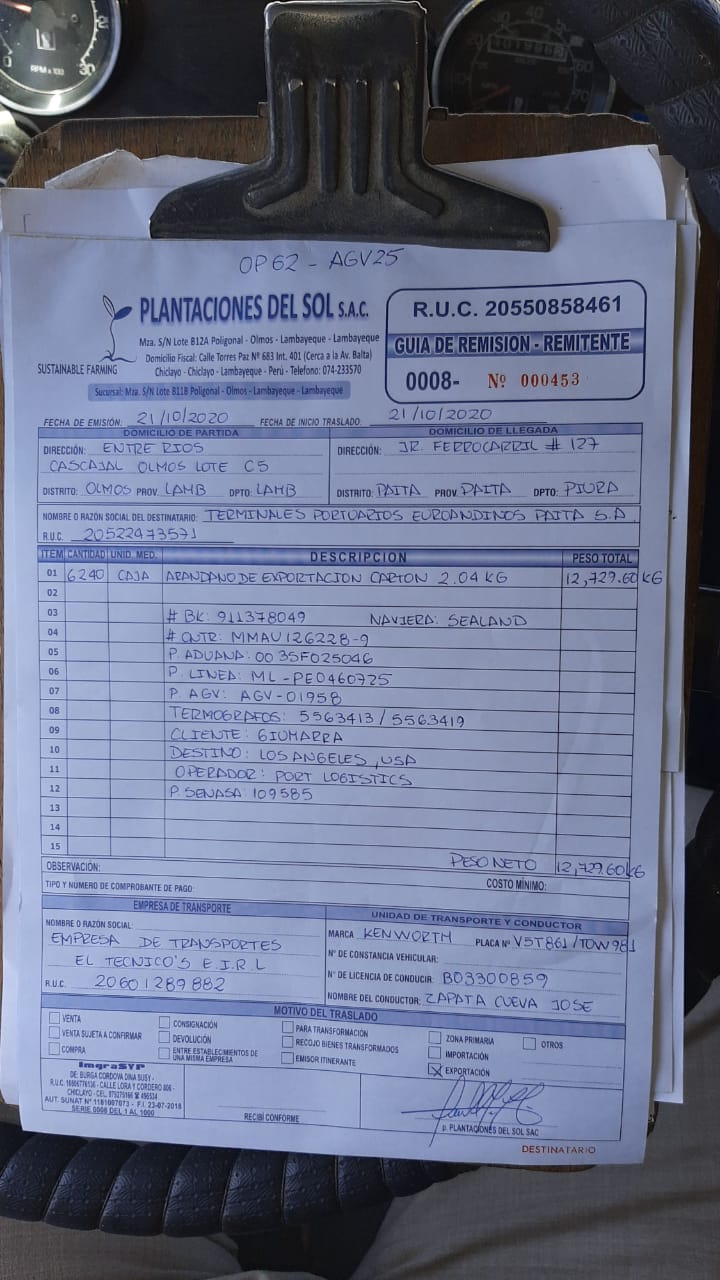 OP 62 - AGV25
PLANTACIONES DEL SOL S.A.C.
SUSTAINABLE FARMING
Mza. S/N Lote B12A Poligonal - Olmos - Lambayeque - Lambayeque
Domicilio Fiscal: Calle Torres Paz Nº 683 Int. 401 (Cerca a la Av. Balta)
Chiclayo - Chiclayo - Lambayeque - Perú - Telefono: 074-233570
Sucursal: Mza. S/N Lote B11B Poligonal - Olmos - Lambayeque - Lambayeque
R.U.C. 20550858461
GUIA DE REMISION - REMITENTE
0008- Nº 000453
FECHA DE EMISIÓN: 21/10/2020 FECHA DE INICIO TRASLADO: 21/10/2020
DOMICILIO DE PARTIDA
DIRECCIÓN: ENTRE RIOS
CASCAJAL OLMOS LOTE C5
DISTRITO: OLMOS PROV. LAMB DPTO: LAMB
DOMICILIO DE LLEGADA
DIRECCIÓN: JR. FERROCARRIL # 127
DISTRITO: PAITA PROV. PAITA DPTO: PIURA
NOMBRE O RAZÓN SOCIAL DEL DESTINATARIO: TERMINALES PORTUARIOS EUROANDINOS PAITA S.A.
R.U.C. 20522473571
ITEM CANTIDAD UNID. MED. DESCRIPCION PESO TOTAL
01 6240 CAJA ARANDANO DE EXPORTACION CARTON 2.04 KG 12,729.60 KG
02
03 # BK: 911378049 NAVIERA: SEALAND
04 # CNTR: MMAU126228-9
05 P. ADUANA: 0035F025046
06 P. LINEA: ML-PE0460725
07 P. AGV: AGV-01958
08 TERMOGRAFOS: 5563413 / 5563419
09 CLIENTE: GIUMARRA
10 DESTINO: LOS ANGELES, USA
11 OPERADOR: PORT LOGISTICS
12 P. SENASA: 109585
13
14
15 PESO NETO 12,729.60 KG
OBSERVACIÓN:
TIPO Y NUMERO DE COMPROBANTE DE PAGO: COSTO MÍNIMO:
EMPRESA DE TRANSPORTE
NOMBRE O RAZÓN SOCIAL:
EMPRESA DE TRANSPORTES
EL TECNICO'S E.I.R.L
R.U.C. 20601289882
UNIDAD DE TRANSPORTE Y CONDUCTOR
MARCA KENWORTH PLACA Nº V5T861/TOW981
Nº DE CONSTANCIA VEHICULAR:
Nº DE LICENCIA DE CONDUCIR: B03300859
NOMBRE DEL CONDUCTOR: ZAPATA CUEVA JOSE
MOTIVO DEL TRASLADO
VENTA
VENTA SUJETA A CONFIRMAR
COMPRA
CONSIGNACIÓN
DEVOLUCIÓN
ENTRE ESTABLECIMIENTOS DE
UNA MISMA EMPRESA
PARA TRANSFORMACIÓN
RECOJO BIENES TRANSFORMADOS
EMISOR ITINERANTE
ZONA PRIMARIA
IMPORTACIÓN
X EXPORTACIÓN
OTROS
ImgraSYP
DE: BURGA CORDOVA DINA SUSY -
R.U.C. 16806776136 - CALLE LORA Y CORDERO 806 -
CHICLAYO - CEL. 979275166 ☎ 496534
AUT. SUNAT Nº 1181007073 - F.I. 23-07-2018
SERIE 0008 DEL 1 AL 1000
RECIBÍ CONFORME
p. PLANTACIONES DEL SOL SAC
DESTINATARIO
RPM x 100
30